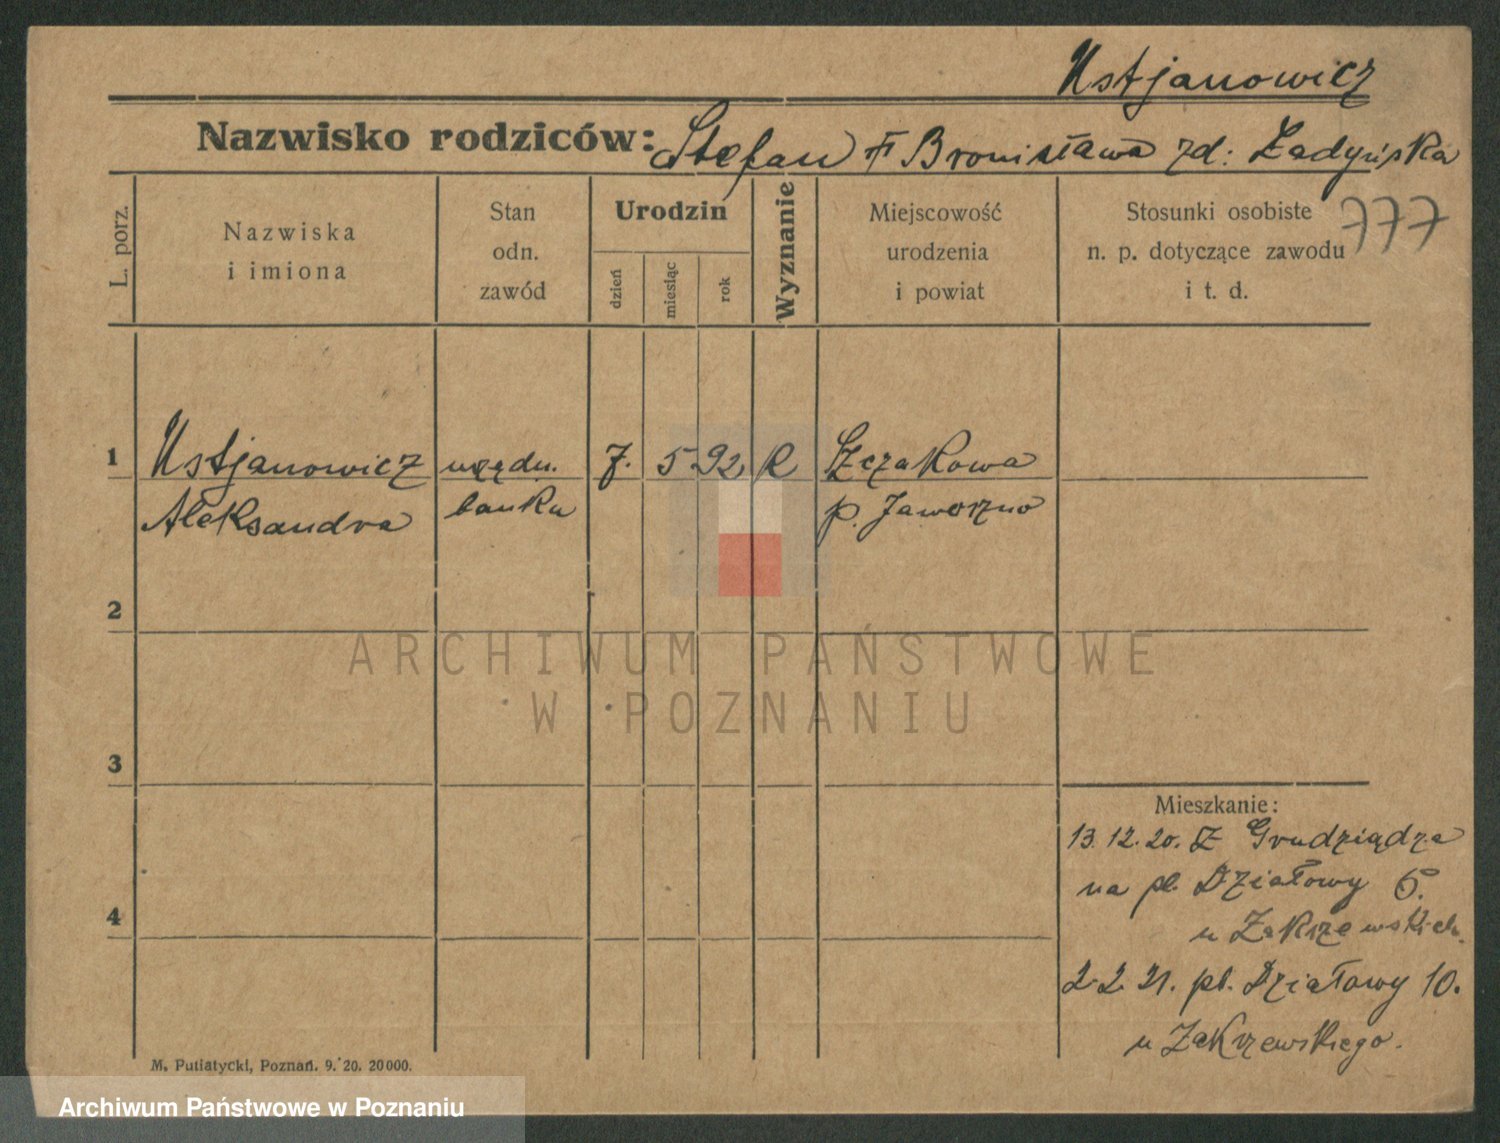 Ustjanowicz
Nazwisko rodziców: Stefan Bronisława zd: Ładyńska
L. porz.
Nazwiska
i imiona
Stan
odn.
zawód
Urodzin
dzień
miesiąc
rok
Wyznanie
Miejscowość
urodzenia
i powiat
Stosunki osobiste
n. p. dotyczące zawodu
i t. d.
777
1 Ustjanowicz urzędn. 7. 5 92 R Szczakowa
Aleksandra banku p. Jaworzno
2
3
4
ARCHIWUM PAŃSTWOWE
W POZNANIU
Mieszkanie:
13.12.20. Z Grudziądza
na pl. Działowy 6.
u Zakrzewskich.
2.2.21. pl. Działowy 10.
u Zakrzewskiego.
M. Putiatycki, Poznań. 9. '20. 20000.
Archiwum Państwowe w Poznaniu